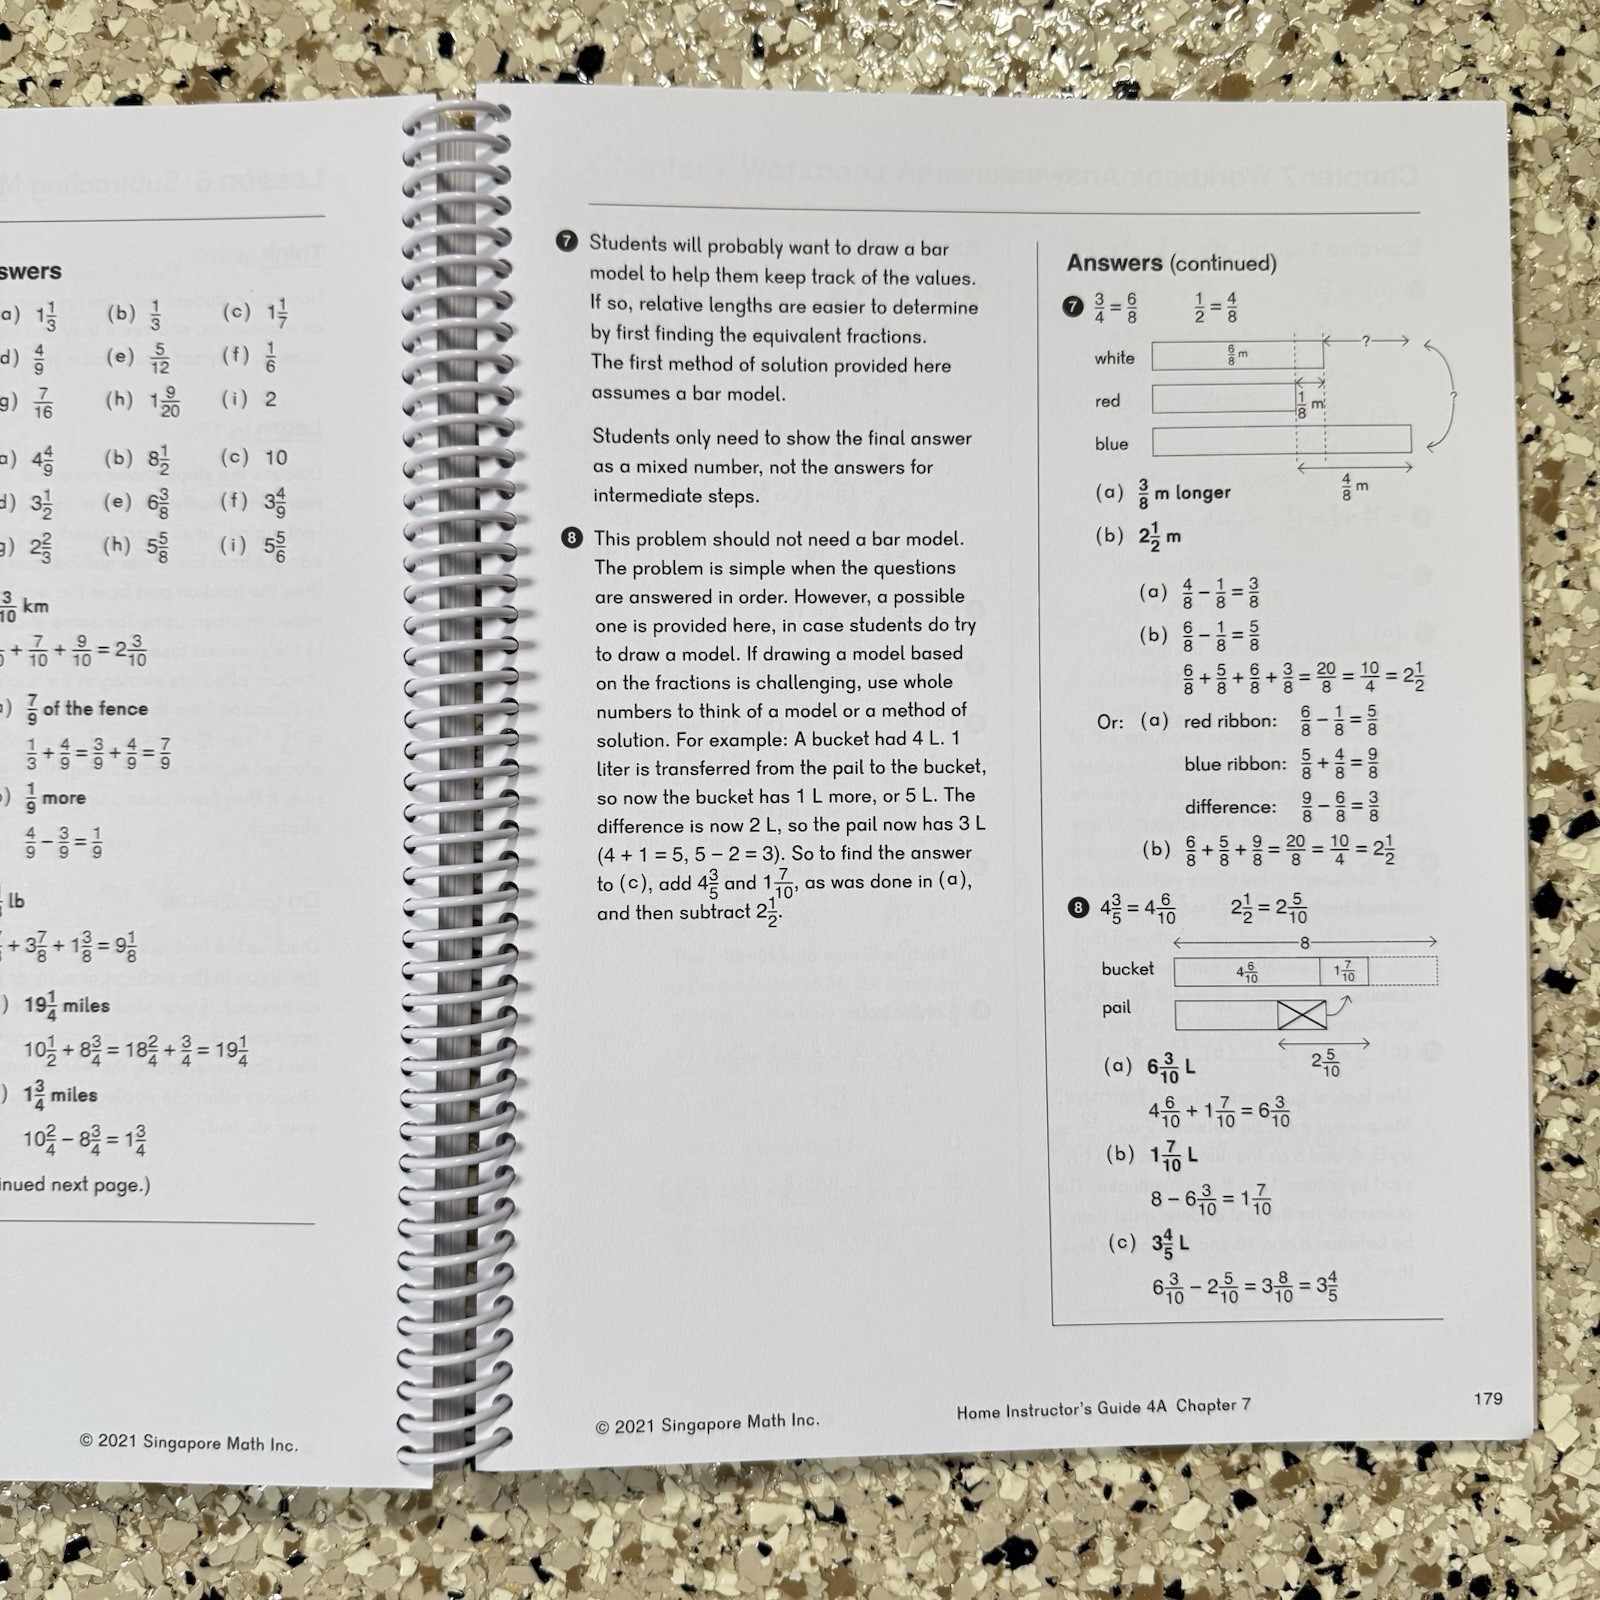 swers
a) 1 1/3 (b) 1/3 (c) 1 1/7
d) 4/9 (e) 5/12 (f) 1/6
g) 7/16 (h) 1 9/20 (i) 2
a) 4 4/9 (b) 8 1/2 (c) 10
d) 3 1/2 (e) 6 3/8 (f) 3 4/9
g) 2 2/3 (h) 5 5/8 (i) 5 5/6
3/10 km
+ 7/10 + 9/10 = 2 3/10
) 7/9 of the fence
1/3 + 4/9 = 3/9 + 4/9 = 7/9
) 1/9 more
4/9 − 3/9 = 1/9
lb
+ 3 7/8 + 1 3/8 = 9 1/8
) 19 1/4 miles
10 1/2 + 8 3/4 = 18 2/4 + 3/4 = 19 1/4
) 1 3/4 miles
10 2/4 − 8 3/4 = 1 3/4
inued next page.)
© 2021 Singapore Math Inc.
7 Students will probably want to draw a bar
model to help them keep track of the values.
If so, relative lengths are easier to determine
by first finding the equivalent fractions.
The first method of solution provided here
assumes a bar model.
Students only need to show the final answer
as a mixed number, not the answers for
intermediate steps.
8 This problem should not need a bar model.
The problem is simple when the questions
are answered in order. However, a possible
one is provided here, in case students do try
to draw a model. If drawing a model based
on the fractions is challenging, use whole
numbers to think of a model or a method of
solution. For example: A bucket had 4 L. 1
liter is transferred from the pail to the bucket,
so now the bucket has 1 L more, or 5 L. The
difference is now 2 L, so the pail now has 3 L
(4 + 1 = 5, 5 − 2 = 3). So to find the answer
to (c), add 4 3/5 and 1 7/10, as was done in (a),
and then subtract 2 1/2.
Answers (continued)
7 3/4 = 6/8 1/2 = 4/8
white 6/8 m ?
red 1/8 m ?
blue
4/8 m
(a) 3/8 m longer
(b) 2 1/2 m
(a) 4/8 − 1/8 = 3/8
(b) 6/8 − 1/8 = 5/8
6/8 + 5/8 + 6/8 + 3/8 = 20/8 = 10/4 = 2 1/2
Or: (a) red ribbon: 6/8 − 1/8 = 5/8
blue ribbon: 5/8 + 4/8 = 9/8
difference: 9/8 − 6/8 = 3/8
(b) 6/8 + 5/8 + 9/8 = 20/8 = 10/4 = 2 1/2
8 4 3/5 = 4 6/10 2 1/2 = 2 5/10
8
bucket 4 6/10 1 7/10
pail
2 5/10
(a) 6 3/10 L
4 6/10 + 1 7/10 = 6 3/10
(b) 1 7/10 L
8 − 6 3/10 = 1 7/10
(c) 3 4/5 L
6 3/10 − 2 5/10 = 3 8/10 = 3 4/5
© 2021 Singapore Math Inc.
Home Instructor's Guide 4A Chapter 7
179